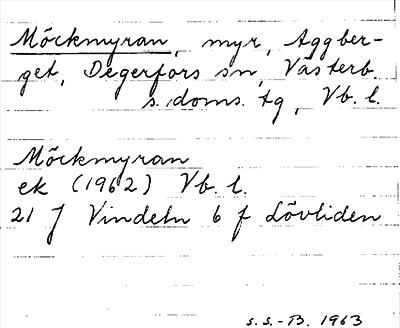 Möckmyran, myr, Aggber-
get, Degerfors sn, Västerb.
s. doms. tg, Vb. l.
Möckmyran
ek (1962) Vb. l.
21 J Vindeln 6 f Lövliden
S.S.-B. 1963